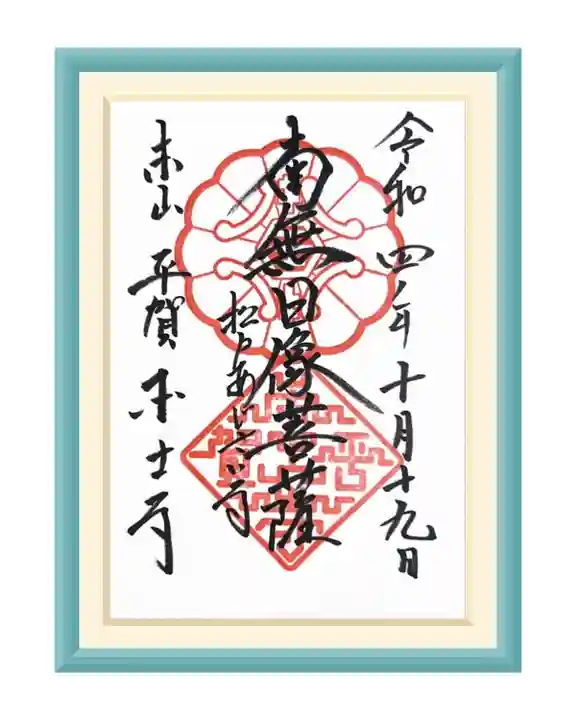 令和四年十月十九日
南無日像菩薩
松戸あじさい寺
本山 平賀 本土寺